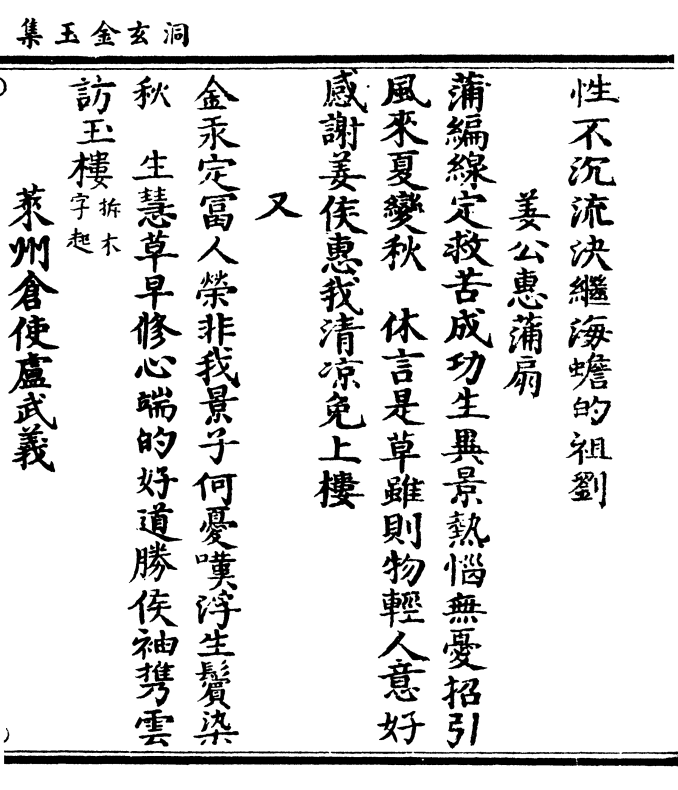 洞玄金玉集
性不沉流決繼海蟾的祖劉
姜公惠蒲扇
蒲編線定救苦成功生異景熱惱無憂招引
風來夏變秋　休言是草雖則物輕人意好
感謝姜侯惠我清凉免上樓
又
金汞定冨人榮非我景子何憂嘆浮生鬢染
秋　生慧草早修心端的好道勝侯袖携雲
訪玉樓拆木字起
萊州倉使盧武義